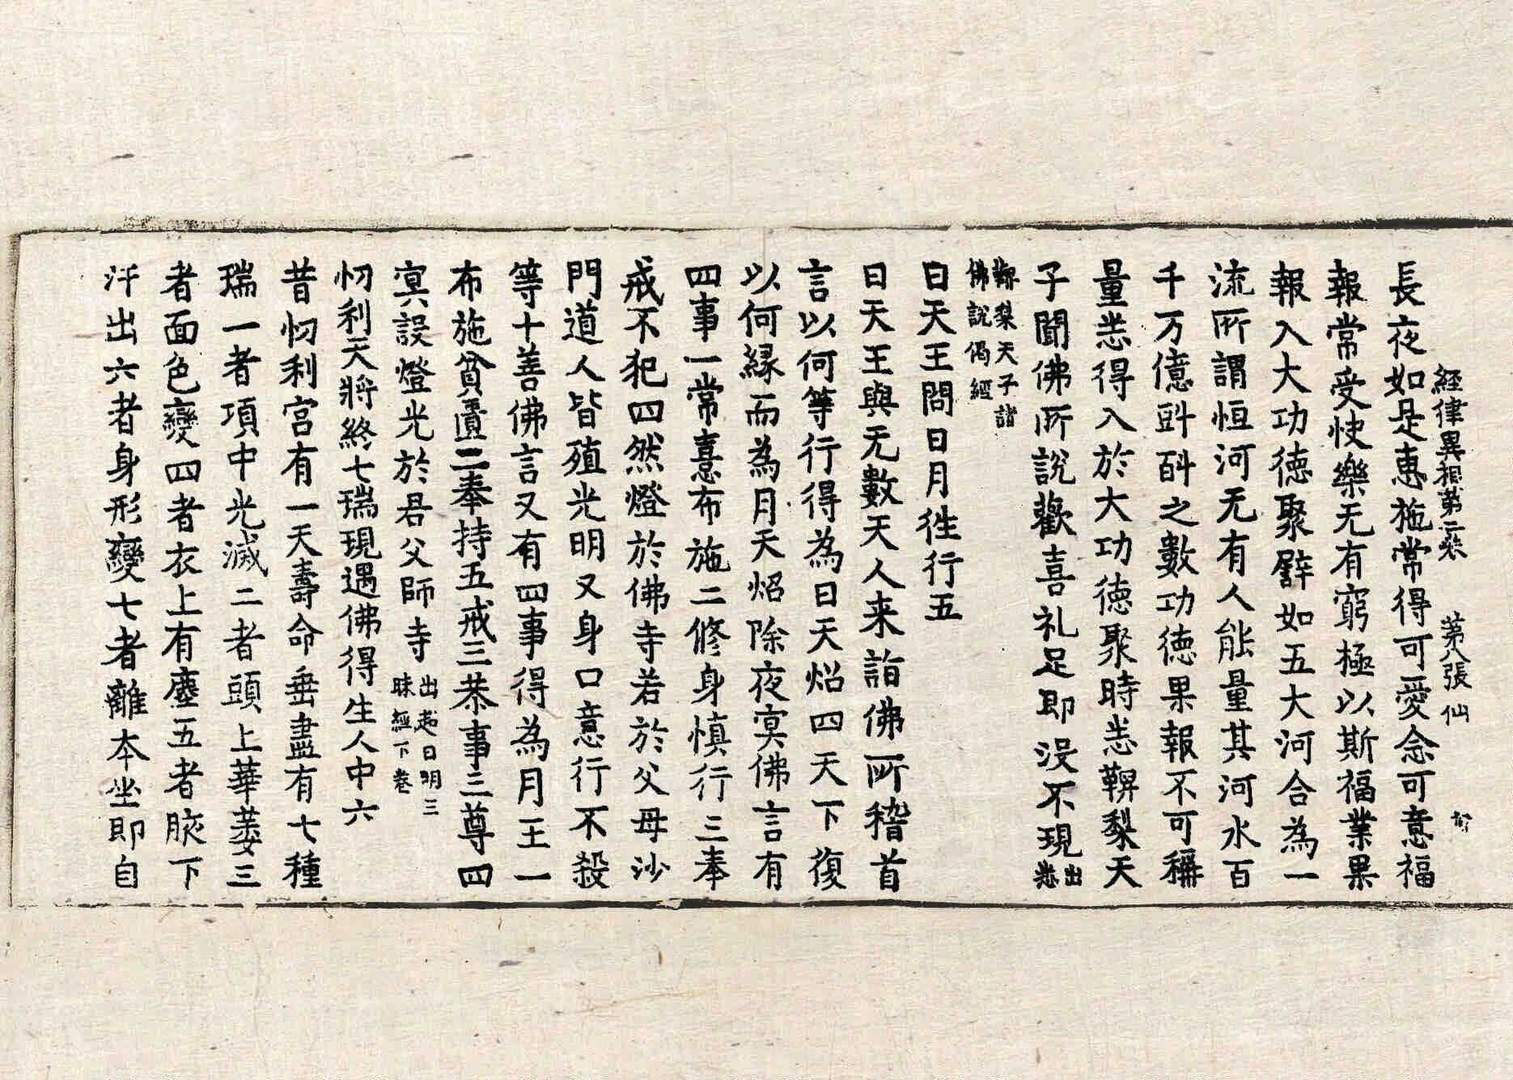 經律異相第二卷 第八張 仙
長夜如是惠施常得可愛念可意福
報常受快樂无有窮極以斯福業果
報入大功德聚譬如五大河合為一
流所謂恒河无有人能量其河水百
千万億㪷百斗之數功德果報不可稱
量悉得入於大功德聚時恙鞞梨天
子聞佛所說歡喜礼足即没不現出恙
鞞梨天子諸
佛說偈經
日天王問日月往行五
日天王與无數天人来詣佛所稽首
言以何等行得為日天炤四天下復
以何緣而為月天炤除夜冥佛言有
四事一常憙布施二修身慎行三奉
戒不犯四然燈於佛寺若於父母沙
門道人皆殖光明又身口意行不殺
等十善佛言又有四事得為月王一
布施貧匱二奉持五戒三恭事三尊四
冥設燈光於君父師寺出超日明三
昧經下卷
忉利天將終七瑞現遇佛得生人中六
昔忉利宮有一天壽命垂盡有七種
瑞一者項中光滅二者頭上華萎三
者面色變四者衣上有塵五者腋下
汗出六者身形變七者離本坐即自